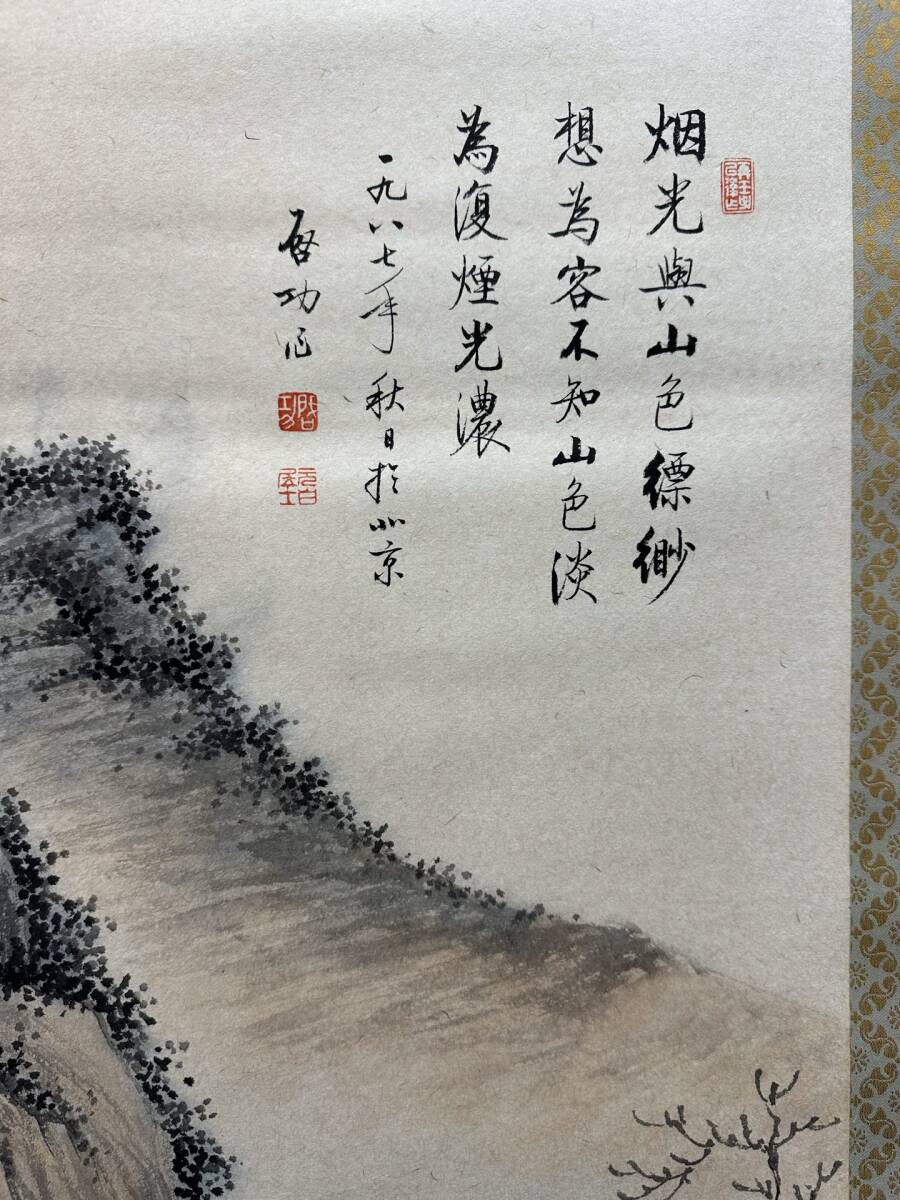 烟光與山色縹緲
想為容不知山色淡
為復煙光濃
一九八七年秋日於北京
啓功
啓功
元白